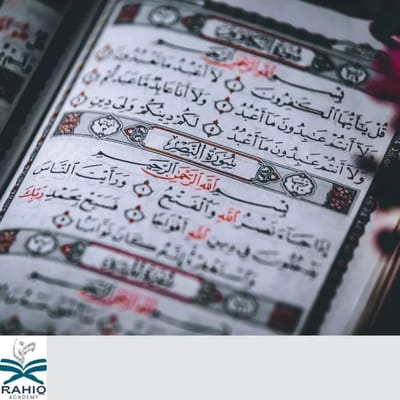 سُورَةُ الكَافِرُونَ
بِسْمِ اللَّهِ الرَّحْمَٰنِ الرَّحِيمِ
قُلْ يَٰٓأَيُّهَا ٱلْكَٰفِرُونَ ۝ لَآ أَعْبُدُ مَا تَعْبُدُونَ ۝
وَلَآ أَنتُمْ عَٰبِدُونَ مَآ أَعْبُدُ ۝ وَلَآ أَنَا۠ عَابِدٌ مَّا عَبَدتُّمْ ۝
وَلَآ أَنتُمْ عَٰبِدُونَ مَآ أَعْبُدُ ۝ لَكُمْ دِينُكُمْ وَلِيَ دِينِ ۝
سُورَةُ النَّصْرِ
بِسْمِ اللَّهِ الرَّحْمَٰنِ الرَّحِيمِ
إِذَا جَآءَ نَصْرُ ٱللَّهِ وَٱلْفَتْحُ ۝ وَرَأَيْتَ ٱلنَّاسَ
يَدْخُلُونَ فِى دِينِ ٱللَّهِ أَفْوَاجًا ۝ فَسَبِّحْ بِحَمْدِ رَبِّكَ
وَٱسْتَغْفِرْهُ إِنَّهُۥ كَانَ تَوَّابًۢا ۝
RAHIQ
ACADEMY